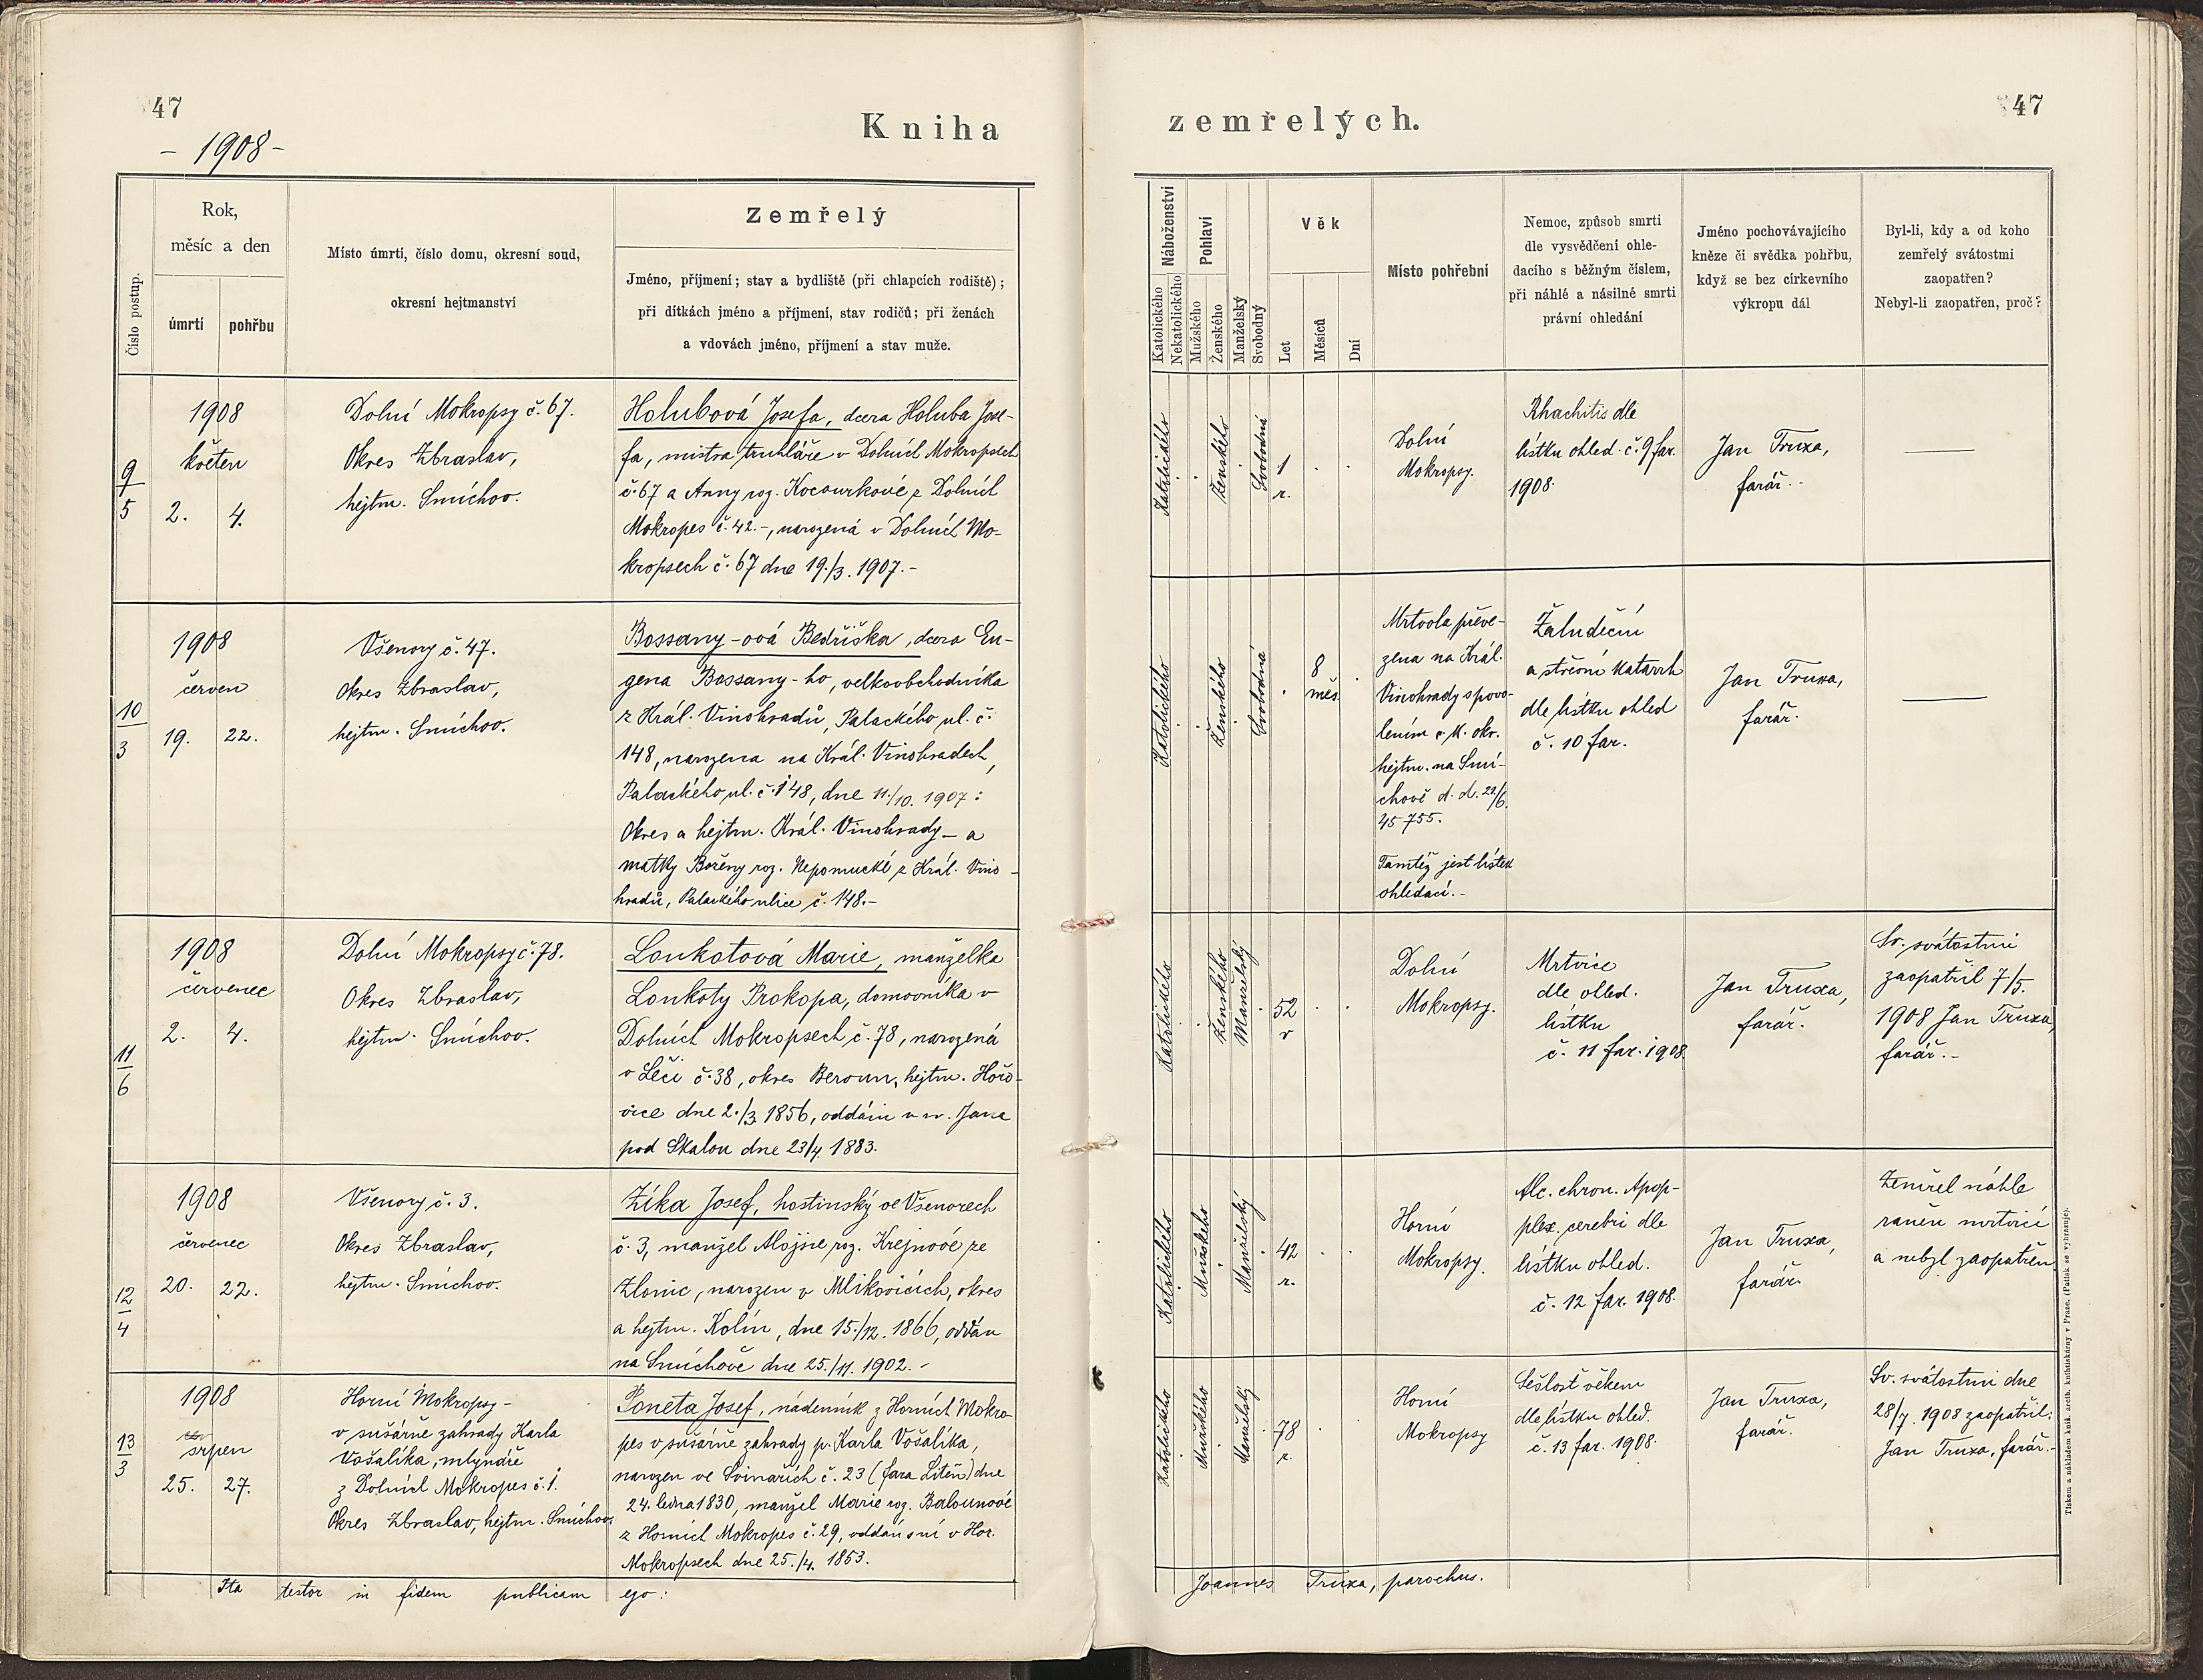 47
- 1908 -
Kniha
Číslo postup.
Rok,
měsíc a den
úmrtí
pohřbu
Místo úmrtí, číslo domu, okresní soud,
okresní hejtmanství
Zemřelý
Jméno, příjmení; stav a bydliště (při chlapcích rodiště);
při dítkách jméno a příjmení, stav rodičů; při ženách
a vdovách jméno, příjmení a stav muže.
9/5
1908
květen
2. 4.
Dolní Mokropsy č. 67.
Okres Zbraslav,
hejtm. Smíchov.
Holubová Josefa, dcera Holuba Jose-
fa, mistra truhláře v Dolních Mokropsích
č. 67 a Anny roz. Kocourkové z Dolních
Mokropes č. 42.-, narozená v Dolních Mo-
kropsech č. 67 dne 19./3. 1907.-
10/3
1908
červen
19. 22.
Všenory č. 47.
Okres Zbraslav,
hejtm. Smíchov.
Bossany-ová Bedřiška, dcera Eu-
gena Bossany-ho, velkoobchodníka
z Král. Vinohradů, Palackého ul. č.
148, narozena na Král. Vinohradech,
Palackého ul. č. 148, dne 11./10. 1907:
Okres a hejtm. Král. Vinohrady - a
matky Boženy roz. Nepomucké z Král. Vino-
hradů, Palackého ulice č. 148.-
11/6
1908
červenec
2. 4.
Dolní Mokropsy č. 78.
Okres Zbraslav,
hejtm. Smíchov.
Loukotová Marie, manželka
Loukoty Prokopa, domovníka v
Dolních Mokropsech č. 78, narozená
v Leči č. 38, okres Beroun, hejtm. Hořo-
vice dne 2./3. 1856, oddáni u sv. Jana
pod Skalou dne 23/4. 1883.
12/4
1908
červenec
20. 22.
Všenory č. 3.
Okres Zbraslav,
hejtm. Smíchov.
Zíka Josef, hostinský ve Všenorech
č. 3, manžel Aloisie roz. Krejnové ze
Zlonic, narozen v Mlékovicích, okres
a hejtm. Kolín, dne 15./12. 1866, oddán
na Smíchově dne 25./11. 1902.-
13/3
1908
srpen
25. 27.
Horní Mokropsy -
v sušárně zahrady Karla
Vošalíka, mlynáře
z Dolních Mokropes č. 1.
Okres Zbraslav, hejtm. Smíchov.
Poneta Josef, nádenník z Horních Mokro-
pes v sušárně zahrady p. Karla Vošalíka,
narozen ve Svinařích č. 23 (fara Liteň) dne
24. ledna 1830, manžel Marie roz. Balounové
z Horních Mokropes č. 29, oddáni v Hor.
Mokropsech dne 25./4. 1853.
Ita testor in fidem publicam ego:
47
zemřelých.
Náboženství
Katolického
Nekatolického
Pohlaví
Mužského
Ženského
Manželský
Svobodný
Věk
Let
Měsíců
Dní
Místo pohřební
Nemoc, způsob smrti
dle vysvědčení ohle-
dacího s běžným číslem,
při náhlé a násilné smrti
právní ohledání
Jméno pochovávajícího
kněze či svědka pohřbu,
když se bez církevního
výkropu dál
Byl-li, kdy a od koho
zemřelý svátostmi
zaopatřen?
Nebyl-li zaopatřen, proč?
Katolického
Ženského
Svobodná
1
r.
Dolní
Mokropsy.
Rhachitis dle
lístku ohled. č. 9 far.
1908.
Jan Truxa,
farář.
Katolického
Ženského
Svobodná
8
měs.
Mrtvola převe-
zena na Král.
Vinohrady s povo-
lením c. k. okr.
hejtm. na Smí-
chově d. d. 22/6.
45755.
Tamtéž jest lístek
ohledací.-
Žaludeční
a střevní katarrh
dle lístku ohled
č. 10 far.
Jan Truxa,
farář.
Katolického
Ženského
Manželský
52
r
Dolní
Mokropsy.
Mrtvice
dle ohled.
lístku
č. 11 far. 1908.
Jan Truxa,
farář.
Sv. svátostmi
zaopatřil 7/5.
1908 Jan Truxa,
farář.-
Katolického
Mužského
Manželský
42
r.
Horní
Mokropsy.
Alc. chron. Apop-
plex. cerebri dle
lístku ohled.
č. 12 far. 1908.
Jan Truxa,
farář.
Zemřel náhle
raněn mrtvicí
a nebyl zaopatřen
Katolického
Mužského
Manželský
78
r.
Horní
Mokropsy
Sešlost věkem
dle lístku ohled.
č. 13 far. 1908.
Jan Truxa,
farář.
Sv. svátostmi dne
28/7. 1908 zaopatřil:
Jan Truxa, farář.-
Joannes Truxa, parochus.
Tiskem a nákladem kníž. arcib. knihtiskárny v Praze. (Patisk se vyhrazuje).